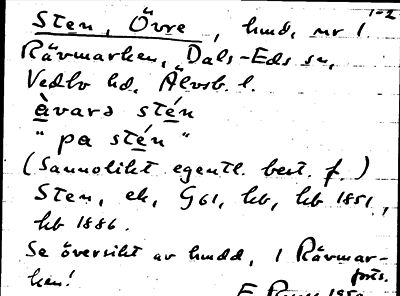 1-2
Sten, Övre, hmd, nr 1
Rävmarken, Dals-Eds sn,
Vedbo hd, Älvsb. l.
àvarə stén
"pa stén"
(Sannolikt egentl. best. f.)
Sten, ek, G61, kb, kb 1851,
kb 1886.
Se översikt av hmdd, i Rävmar-
ken! forts.
1950